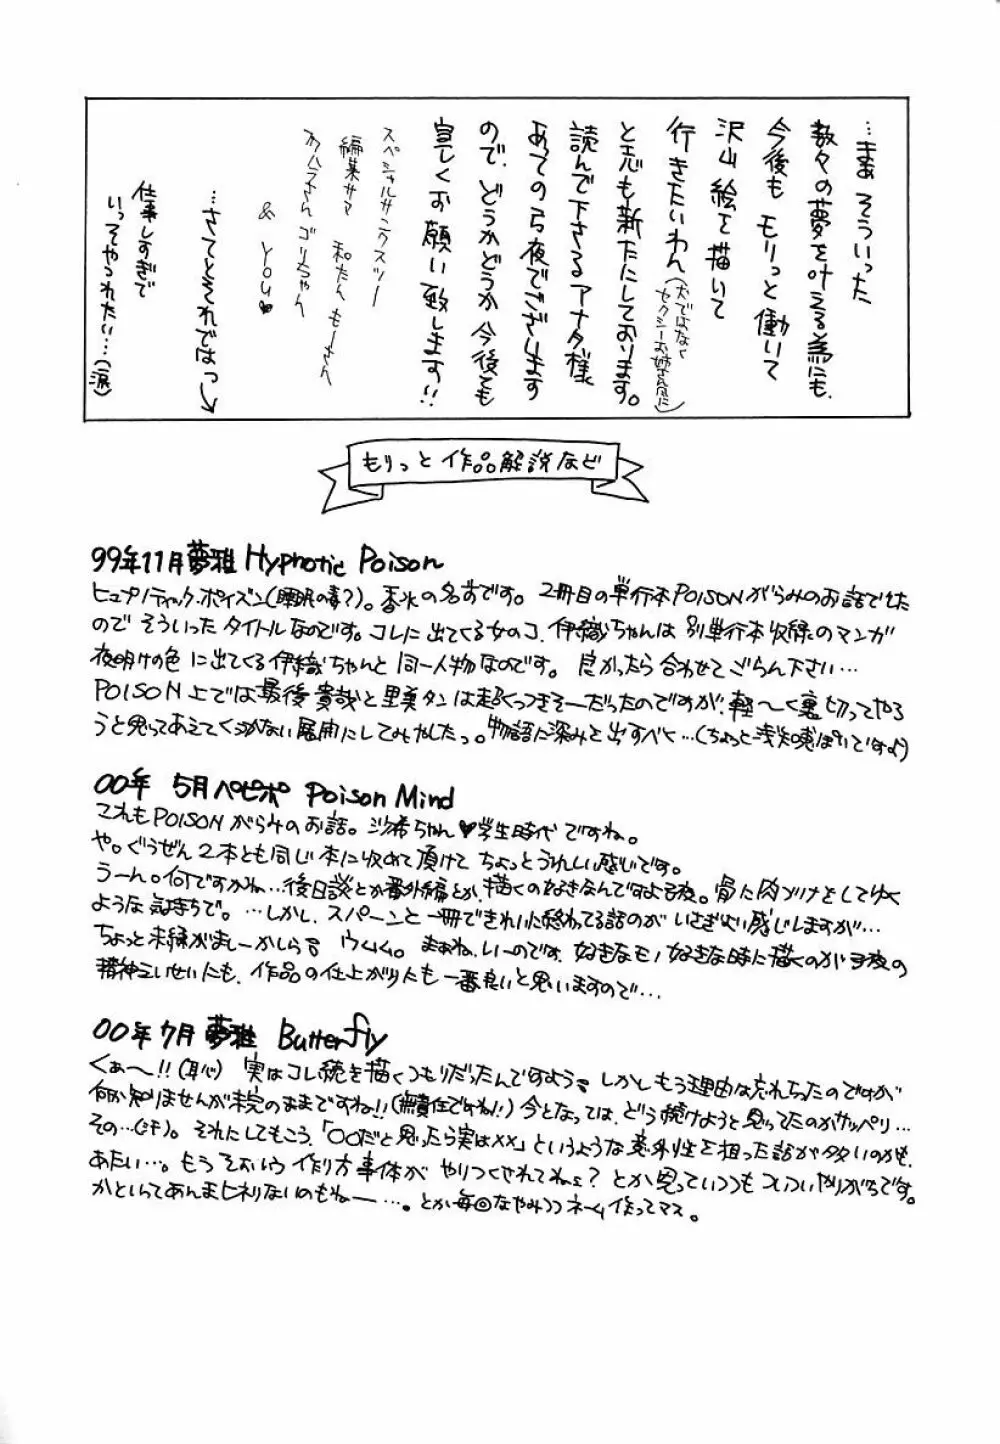 …まぁ そういった
数々の夢を叶える為にも、
今後も モリっと 働いて
沢山 絵を描いて
行きたいわん(犬ではなく
セクシーお姉さん風に)
と志も新たにしております。
読んで下さるアナタ様
あっての弓夜でございます
ので、どうかどうか 今後とも
宜しくお願い致します!!
スペシャルサンクスツー
編集サマ 和たん もーさん
さん ゴリちゃん
& YOU♥
…さてとそれではっ→
仕事しすぎで
いってやつれたい…(涙)
もりっと 作品解説など
99年11月 夢雅 Hypnotic Poison
ヒュプノティック・ポイズン(睡眠の毒?)。香水の名前です。2冊目の単行本POISONがらみのお話でした
ので そういった タイトルなのです。コレに出てくる女のコ、伊織ちゃんは 別単行本収録のマンガ
夜明けの色 に出てくる伊織ちゃんと 同一人物なのです。良かったら 合わせてごらん下さい…
POISON上では最後 貴哉と里美タンは超くっつきそーだったのですが、軽〜く裏切ってやろ
うと思ってあえてくっつかない展開にしてみやしたっ。物語に深みを出すべく…(ちょっと浅知恵ぽいですよ)
00年 5月ペピポ Poison Mind
これもPOISONがらみのお話。沙希ちゃん♥学生時代ですね。
や。ぐうぜん2本とも同じ本に収めて頂けて ちょっとうれしい感じです。
うーん。何ですかね…後日談とか番外編とか、描くの好きなんですよ子夜。骨に肉づけをしてゆく
ような気持ちで。…しかし、スパーンと一冊できれいに終わってる話のが いさぎよい感じしますが…
ちょっと未練がましーかしら? ウムム。まぁね、いーのです、好きなモノ好きな時に描くのが子夜の
精神えいせいにも、作品の仕上がりにも 一番良いと思いますので…
00年7月 夢雅 Butterfly
くぁ〜!!(恥) 実はコレ続きを描くつもりだったんですよう。しかしもう理由は忘れちったのですが
何か知りませんが未完のままですね!!(無責任ですね!!)今となっては、どう続けようと思ってたのかサッパリ…
その…(汗)。それにしてもこう、「〇〇だと思ったら実は××」というような意外性を狙った話が多いのかも、
あたい…。もうそおいう作り方事体が やりつくされてねぇ?とか思っていつつもついついやりがちです。
かといってあんまヒネりないのもねー…。とか毎回なやみつつネーム作ってマス。